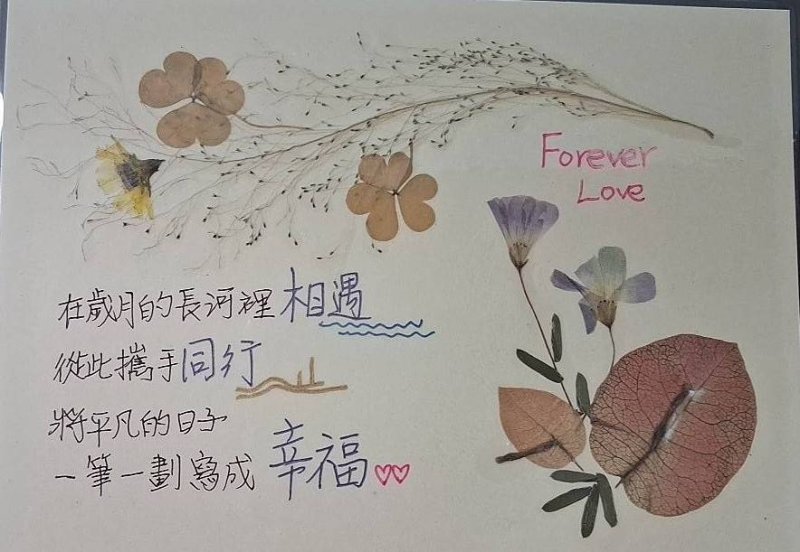 Forever
Love
在歲月的長河裡相遇
從此攜手同行
將平凡的日子
一筆一劃寫成 幸福